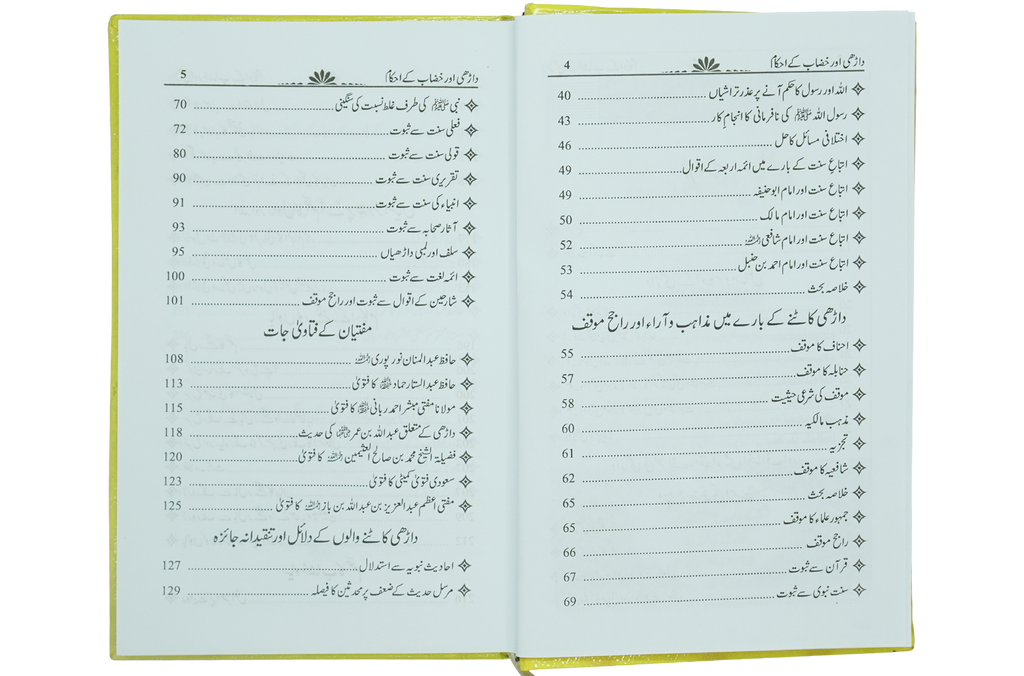 داڑھی اور خضاب کے احکام 4
اللہ اور رسول کا حکم آنے پر عذر تراشیاں 40
رسول اللہ ﷺ کی نافرمانی کا انجام کار 43
اختلافی مسائل کا حل 46
اتباعِ سنت کے بارے میں ائمہ اربعہ کے اقوال 49
اتباعِ سنت اور امام ابو حنیفہ 49
اتباعِ سنت اور امام مالک 50
اتباعِ سنت اور امام شافعی رحمہ اللہ 52
اتباعِ سنت اور امام احمد بن حنبل 53
خلاصہ بحث 54
داڑھی کاٹنے کے بارے میں مذاہب و آراء اور راجح موقف
احناف کا موقف 55
حنابلہ کا موقف 57
موقف کی شرعی حیثیت 58
مذہب مالکیہ 60
تجزیہ 61
شافعیہ کا موقف 62
خلاصہ بحث 65
جمہور علماء کا موقف 65
راجح موقف 66
قرآن سے ثبوت 67
سنت نبوی سے ثبوت 69
داڑھی اور خضاب کے احکام 5
نبی ﷺ کی طرف غلط نسبت کی سنگینی 70
فعلی سنت سے ثبوت 72
قولی سنت سے ثبوت 80
تقریری سنت سے ثبوت 90
انبیاء کی سنت سے ثبوت 91
آثار صحابہ سے ثبوت 93
سلف اور لمبی داڑھیاں 95
ائمہ لغت سے ثبوت 100
شارحین کے اقوال سے ثبوت اور راجح موقف 101
مفتیان کے فتاویٰ جات
حافظ عبدالمنان نور پوری رحمہ اللہ 108
حافظ عبدالستار حماد حفظہ اللہ کا فتویٰ 113
مولانا مفتی مبشر احمد ربانی حفظہ اللہ کا فتویٰ 115
داڑھی کے متعلق عبداللہ بن عمر رضی اللہ عنہما کی حدیث 118
فضیلۃ الشیخ محمد بن صالح العثیمین رحمہ اللہ کا فتویٰ 120
سعودی فتویٰ کمیٹی کا فتویٰ 123
مفتی اعظم عبدالعزیز بن عبداللہ بن باز رحمہ اللہ کا فتویٰ 125
داڑھی کاٹنے والوں کے دلائل اور تنقیدانہ جائزہ
احادیث نبویہ سے استدلال 127
مرسل حدیث کے ضعف پر محدثین کا فیصلہ 129